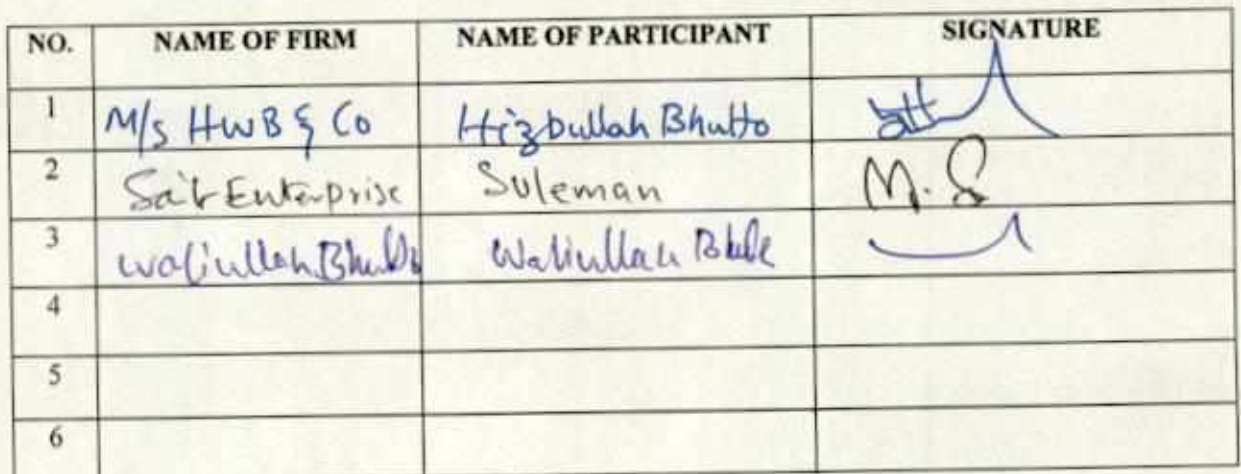 NO. NAME OF FIRM NAME OF PARTICIPANT SIGNATURE
1 M/s HWB & Co Hizbullah Bhutto
2 Enterprise Suleman M.S
3 Waliullah Bhutto Waliullah
4
5
6